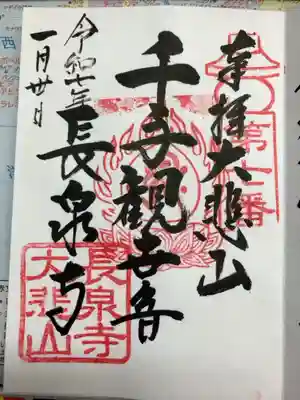 奉拝
大悲山
第七番
千手観世音
長泉寺
令和七年
一月廿日
長泉寺
大悲山